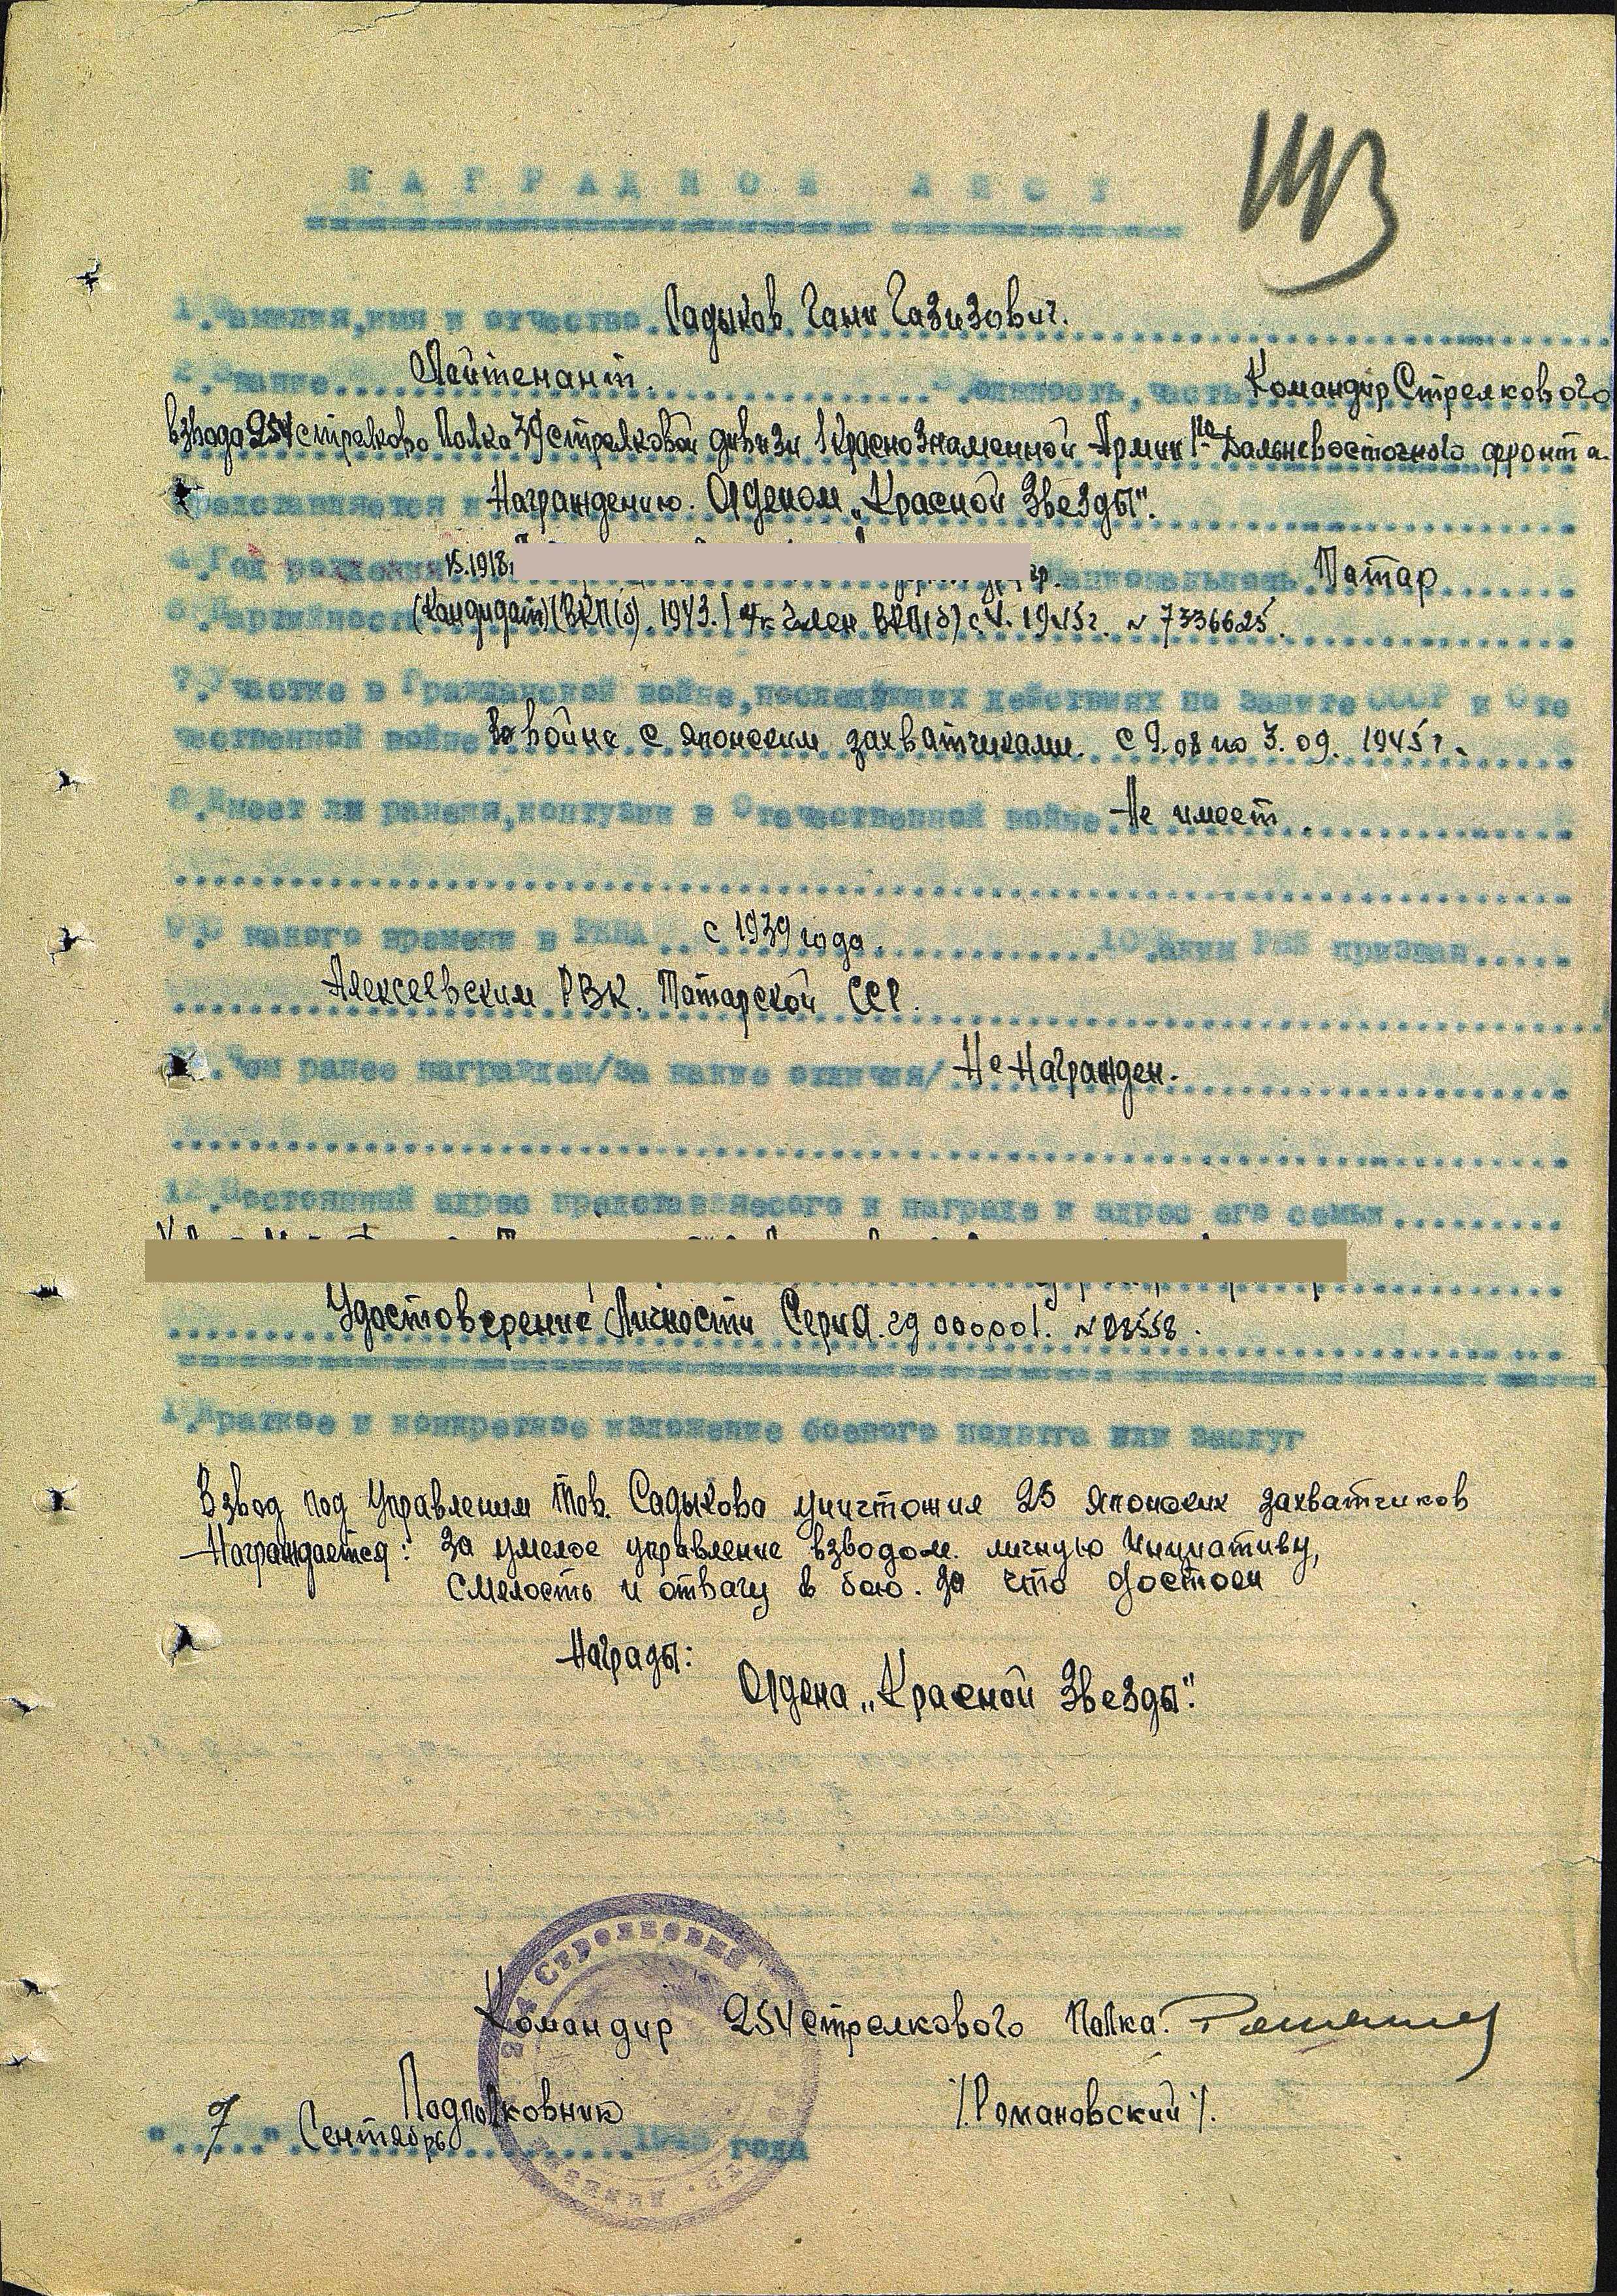 НАГРАДНОЙ ЛИСТ
1. Фамилия, имя и отчество. Садыков Гани Газизович.
2. Звание. Лейтенант. должность, часть Командир Стрелкового
взвода 254 стрелково Полка 39 стрелковой дивизи 1 Краснознаменной Армии 1го Дальневосточного фронта.
Представляется к Награждению. Орденом „Красной Звезды".
4. Год рождения 1918г национальность Татар
6. Партийность (Кандидат) (ВКП(б). 1943. член ВКП(б) с V. 1945г. № 7336625.
7. Участие в Гражданской войне, последующих действиях по защите СССР и Оте
чественной войне. В войне с японским захватчиками. с 9.08 по 3.09. 1945г.
8. Имеет ли раненя, контузии в Отечественной войне Не имеет.
9. С какого времени в РККА с 1939 года. 10. Каким РВК призван
Алексеевским РВК. Татарской ССР.
11. Чем ранее награжден/за какие отличия/ Не Награжден.
12. Постоянный адрес представляемого к награде и адрес его семьи
Удостоверение Личности Серия. гд 000001. №
1. Краткое и конкретное изложение боевого подвига или заслуг
Взвод под Управлением Тов. Садыкова уничтожил 25 японских захватчиков
Награждается: За умелое управление взводом. личную Инициативу,
Смелость и отвагу в бою. за что достоен
Награды:
Ордена „Красной Звезды".
Командир 254 стрелкового Полка.
Подполковник /Романовский/.
"7" Сентябрь 1945 года